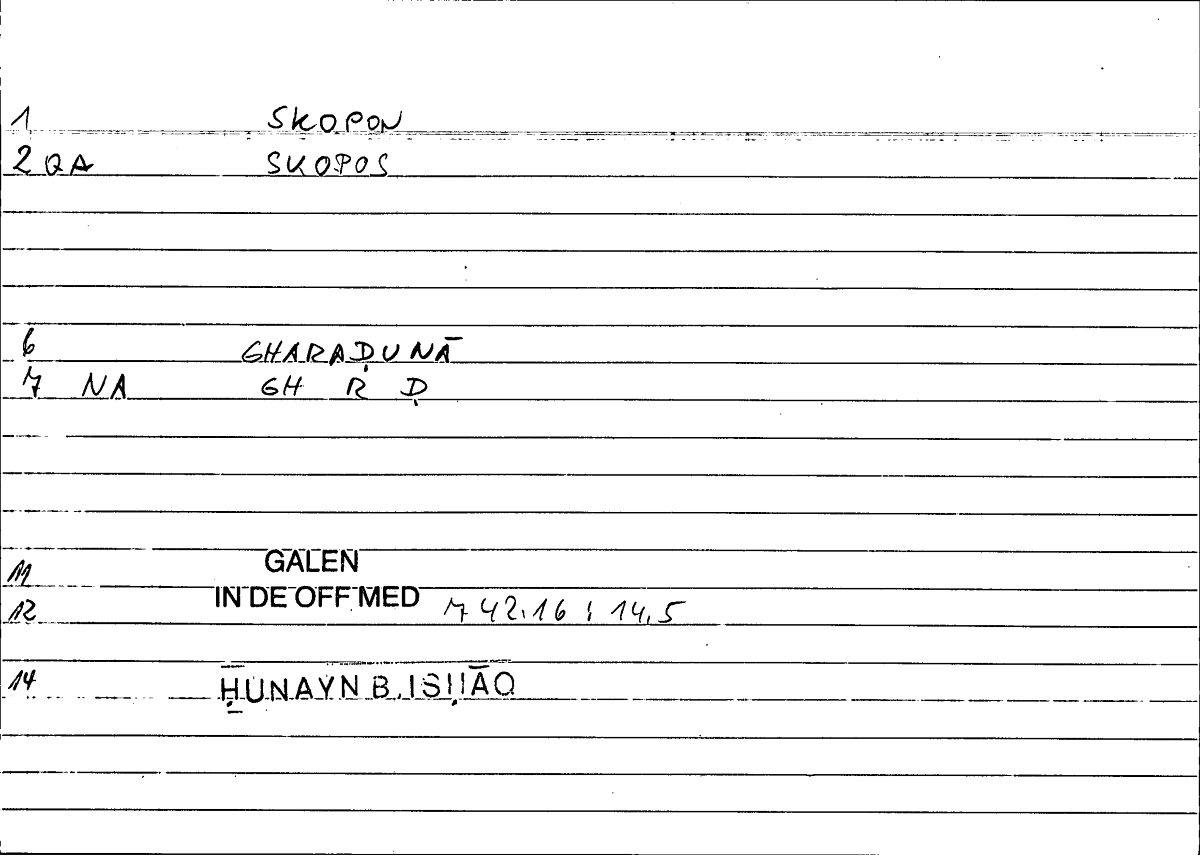 1 SKOPON
2 QA SKOPOS
6 GHARAḌUNĀ
7 NA GH R Ḍ
11 GALEN
12 IN DE OFF MED 742,16 ; 14,5
14 ḤUNAYN B. ISḤĀQ